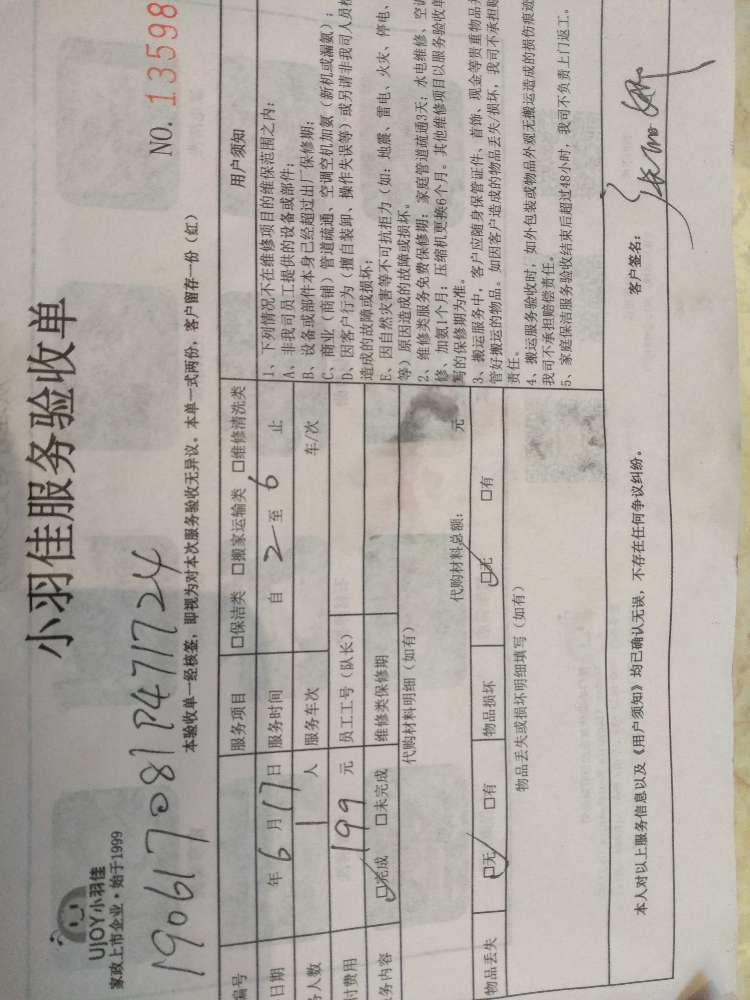 UJOY小羽佳
家政上市企业·始于1999
小羽佳服务验收单
190617081P471724
NO. 13598
本验收单一经核签，即视为对本次服务验收无异议。本单一式两份，客户留存一份（红）
编号 服务项目 □保洁类 □搬家运输类 □维修清洗类 用户须知
日期 年 6 月 17 日 服务时间 自 2 至 6 止
务人数 1 人 服务车次 车/次
付费用 199 元 员工工号（队长）
务内容 ☑完成 □未完成 维修类保修期
代购材料明细（如有）
代购材料总额： 元
物品丢失 ☑无 □有 物品损坏 ☑无 □有
物品丢失或损坏明细填写（如有）
1、下列情况不在维修项目的维保范围之内：
A、非我司员工提供的设备或部件；
B、设备或部件本身已经超过出厂保修期；
C、商业（商铺）管道疏通、空调空机加氨（新机或漏氨）；
D、因客户行为（擅自装卸、操作失误等）或另请非我司人员
造成的故障或损坏；
E、因自然灾害等不可抗拒力（如：地震、雷电、火灾、停电、
等）原因造成的故障或损坏。
2、维修类服务免费保修期：家庭管道疏通3天；水电维修、空
修、加氨1个月；压缩机更换6个月。其他维修项目以服务验收单
写的保修期为准。
3、搬运服务中，客户应随身保管证件、首饰、现金等贵重物品
管好搬运的物品。如因客户造成的物品丢失/损坏，我司不承担
责任。
4、搬运服务验收时，如外包装或物品外观无搬运造成的损伤痕迹
我司不承担赔偿责任。
5、家庭保洁服务验收结束后超过48小时，我司不负责上门返工。
本人对以上服务信息以及《用户须知》均已确认无误，不存在任何争议纠纷。 客户签名：